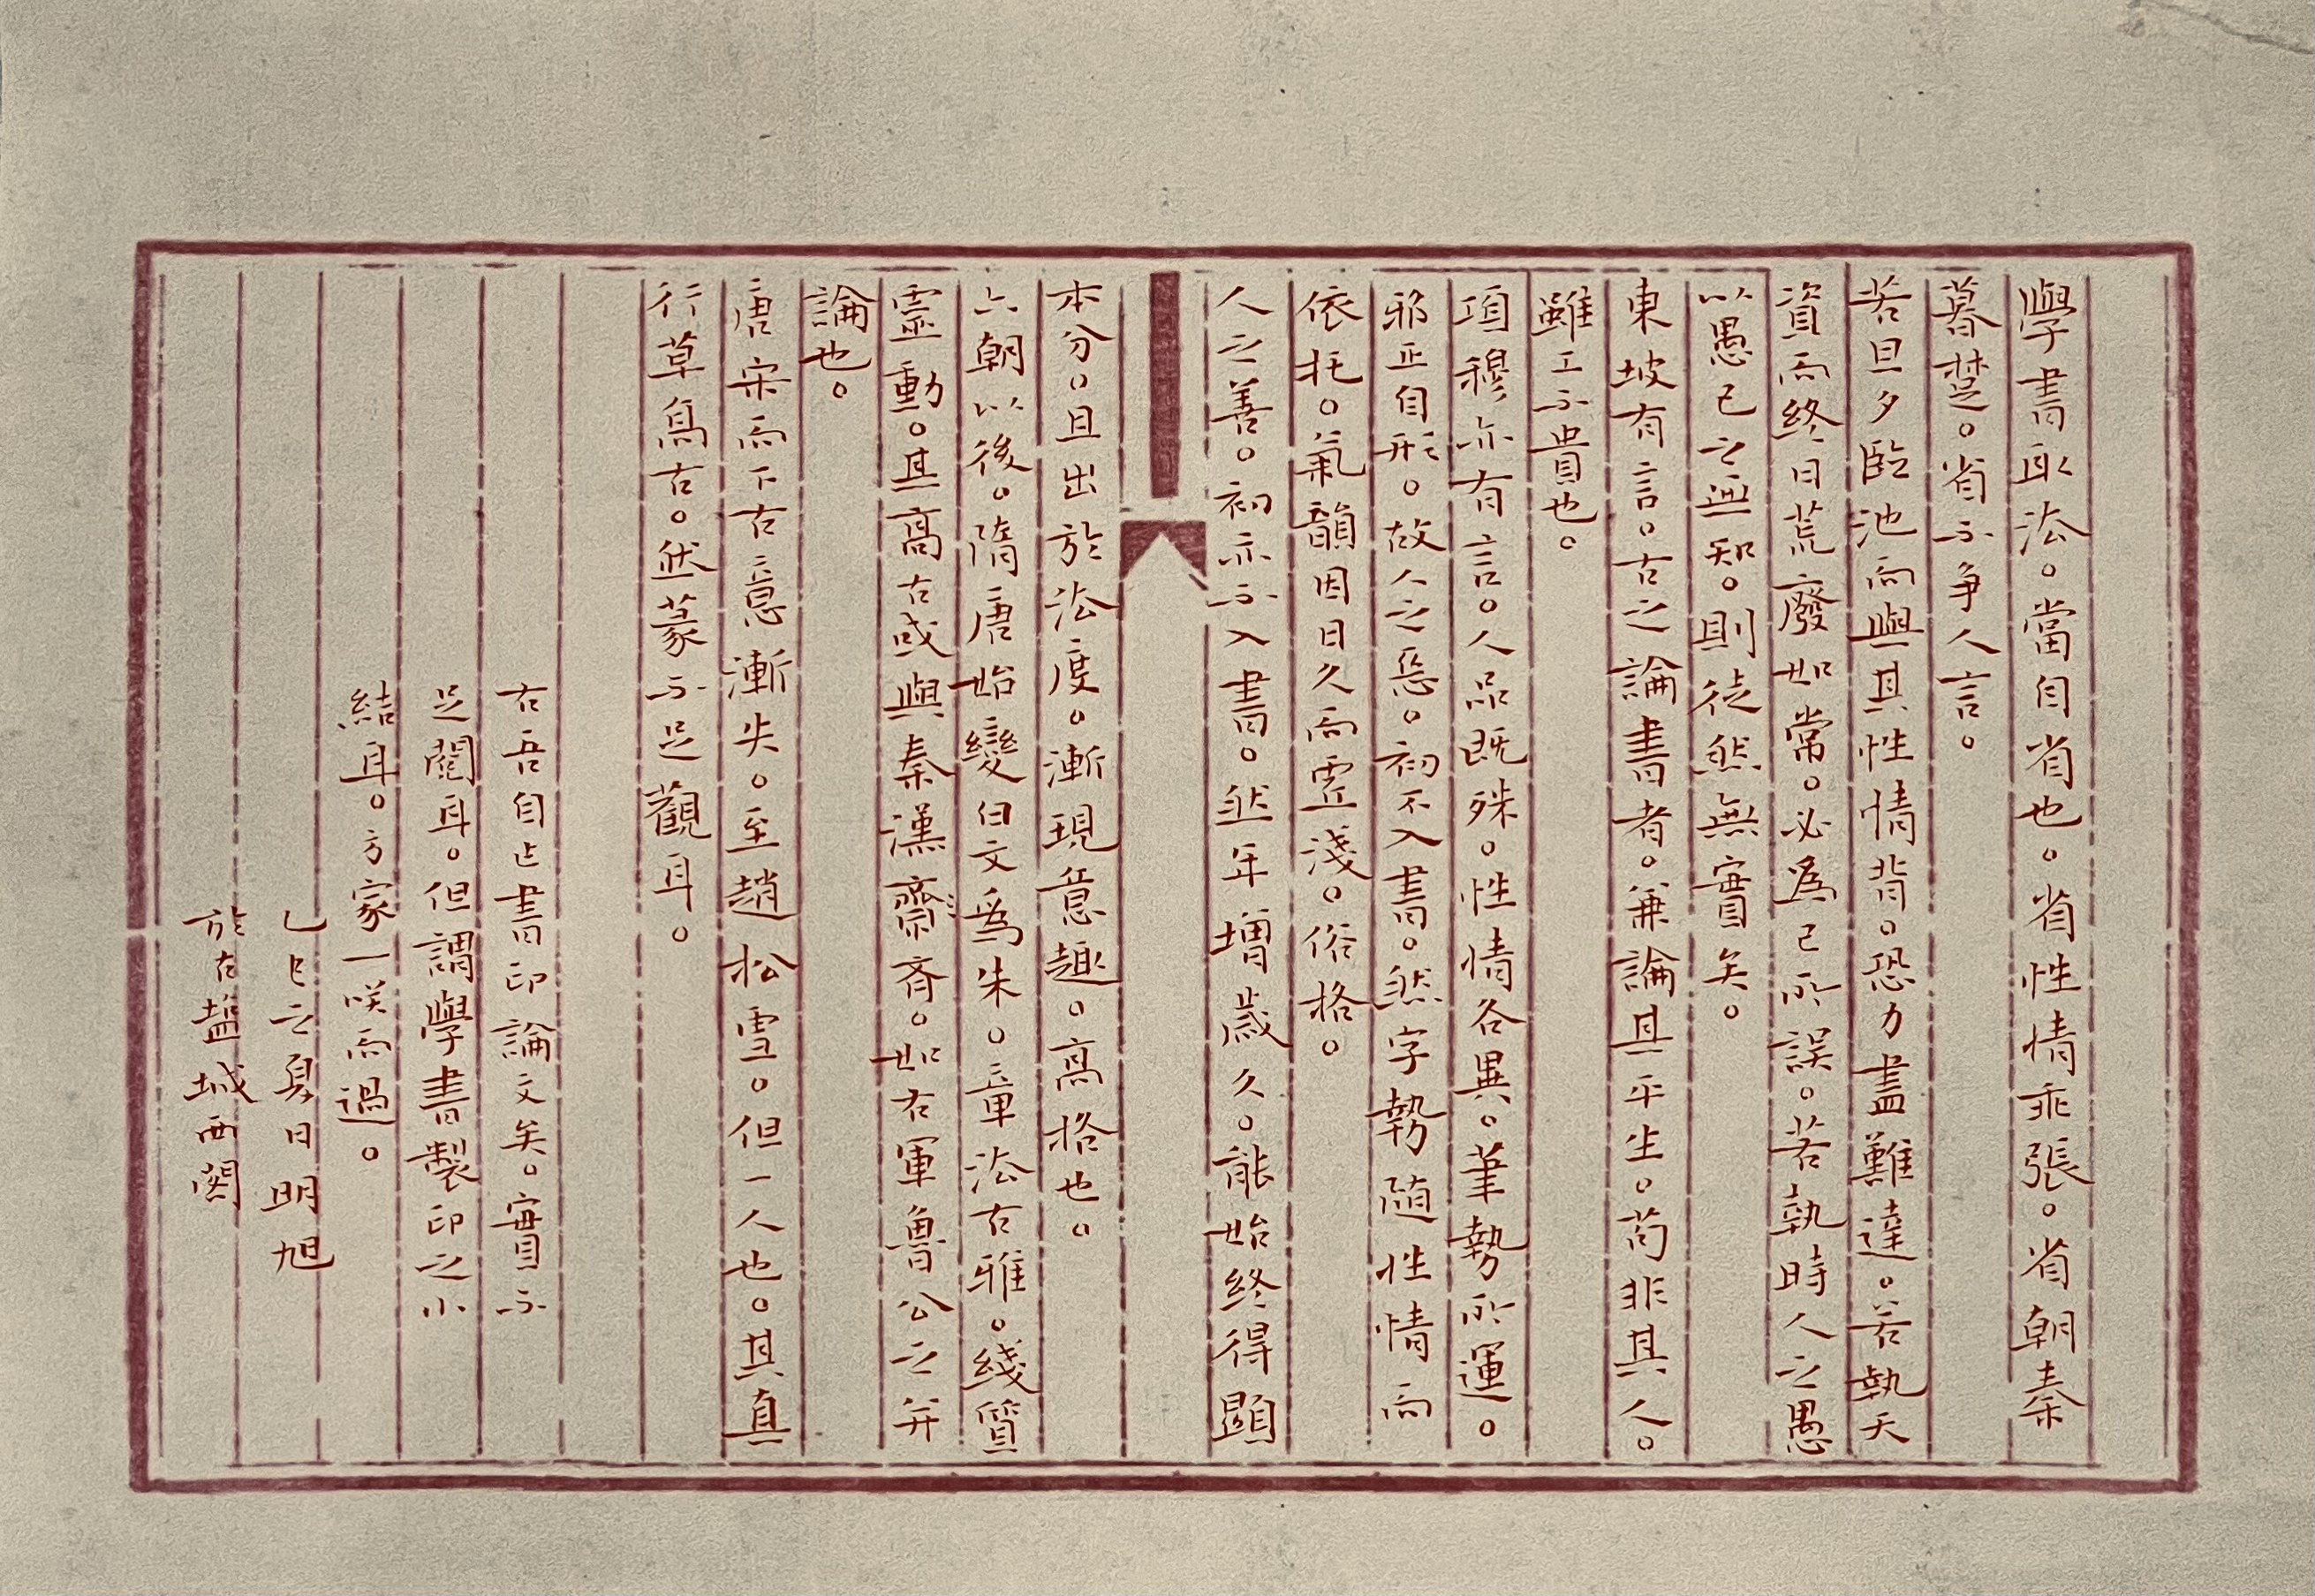 學書取法。當自省也。省性情乖張。省朝秦
暮楚。省不争人言。
若旦夕臨池而與其性情背。恐力盡難達。若執天
資而終日荒廢如常。必為己所誤。若執時人之愚
以愚己之無知。則徒然無實矣。
東坡有言。古之論書者。兼論其平生。苟非其人。
雖工不貴也。
項穆亦有言。人品既殊。性情各異。筆勢所運。
邪正自形。故人之惡。初不入書。然字勢隨性情而
依托。氣韻因日久而虛淺。俗格。
人之善。初亦不入書。然年增歲久。能始終得顯
本分。且出於法度。漸現意趣。高格也。
六朝以後。隋唐始變白文為朱。章法古雅。綫質
靈動。其高古或與秦漢齋齊。如右軍魯公之並
論也。
唐宋而下古意漸失。至趙松雪。但一人也。其真
行草為古。然篆不足觀耳。
右吾自作書印論文矣。實不
足閱耳。但謂學書製印之小
結耳。方家一咲而過。
乙巳之夏日明旭
於古鹽城西閣